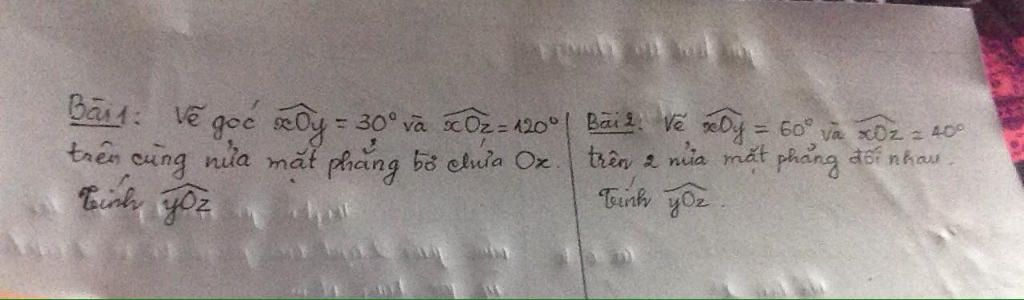 Bài 1: Vẽ góc xOy = 30° và xOz = 120°
trên cùng nửa mặt phẳng bờ chứa Ox.
Tính yOz
Bài 2: Vẽ xOy = 60° và xOz = 40°
trên 2 nửa mặt phẳng đối nhau.
Tính yOz.